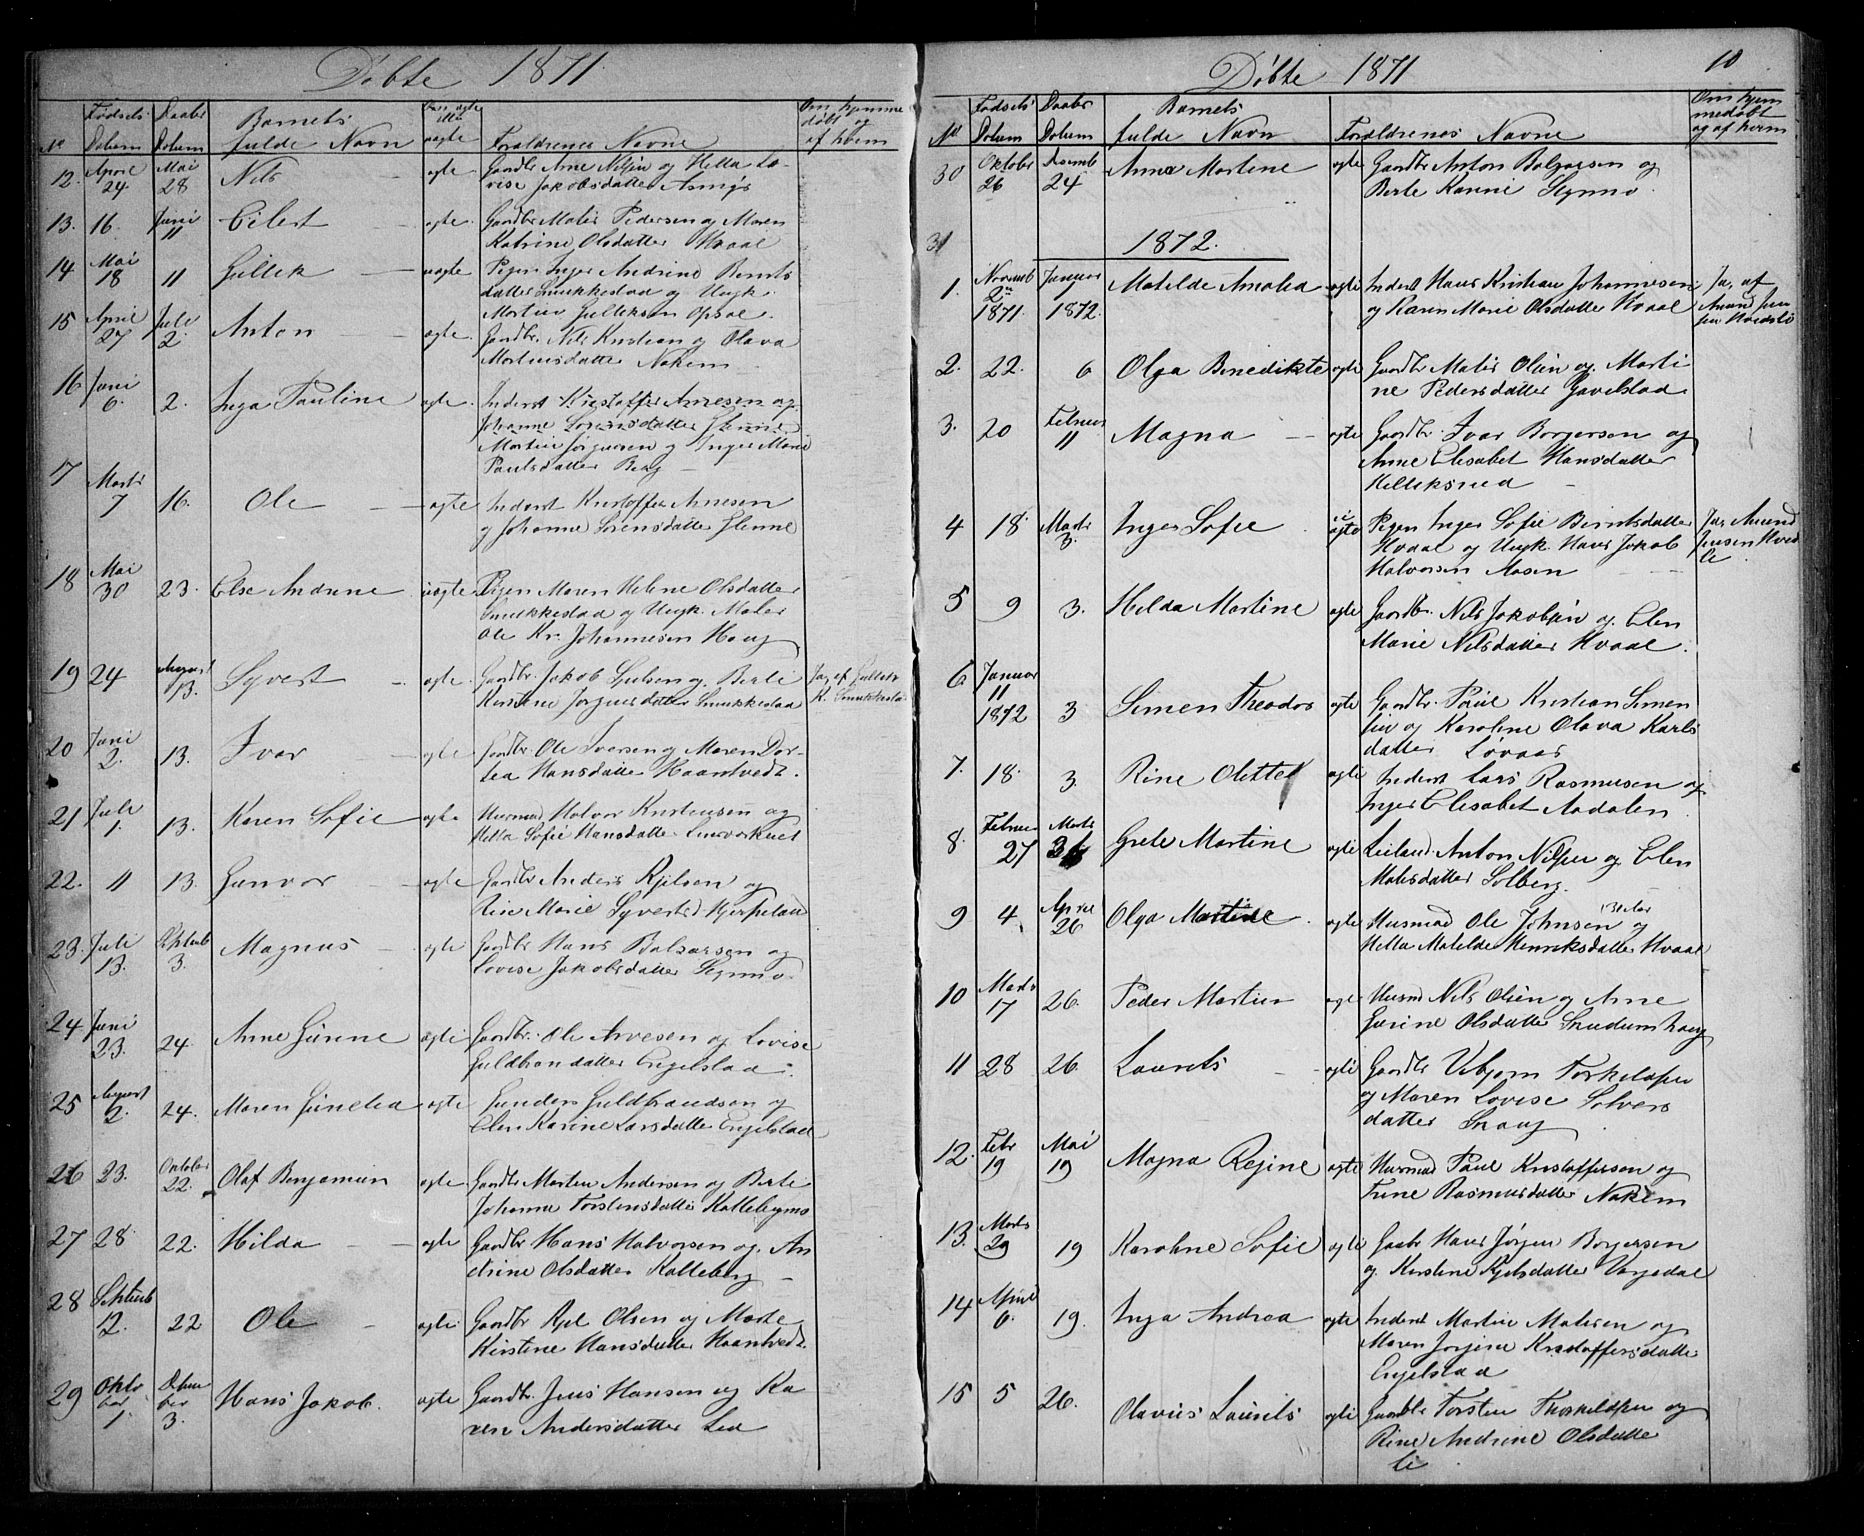 Døbte 1871
No
Fødsels
Datum
Daabs
Datum
Barnets
fulde Navn
ægte
Forældrenes Navne
Om hjemme
døbt og
af hvem
12. April 24 Mai 28 Nils ægte Gaardbr. Arne Nilsen og Hella Lo-
vise Jakobsdatter
13. 16. Juni 11 Eilert ægte Gaardbr. Mates Pedersen og Maren
Katrine Olsdatter Hvaal
14 Mai 18 11 Gullik uægte Pigen Inger Andrine Bernts
datter Smukkestad og Ungk.
Martin Gulliksen Opsal.
15 April 27 Juli 2. Anton ægte Gaardbr. Nils Kristian og Olava
Martinsdatter Nakem
16 Juni 6. 2. Inga Pauline ægte Inderst Kristoffer Arnesen og
Johanne Sørensdatter Glenne
Martin Jørgensen og Inger Marie
Paulsdatter Berg
17 Marts 7 16. Ole ægte Inderst Kristoffer Arnesen
og Johanne Sørensdatter Glenne
18 Mai 30 23. Else Andrine uægte Pigen Maren Helene Olsdatter
Smukkestad og Ungk. Maler
Ole Kr. Johannesen Haug
19 24 August 13. Syvert ægte Gaardbr. Jakob Gulsen og Berte
Kirstine Jørgensdatter Smukkestad Ja, af Gullik
K. Smukkestad
20 Juni 2. 13. Ivar ægte Gaardbr. Ole Iversen og Maren Dor-
tea Hansdatter Haantvedt.
21 Juli 1. 13. Karen Sofie ægte Husmad Halvor Kristensen og
Hella Sofie Hansdatter
22. 11 13. Gunvor ægte Gaardbr. Anders Kjelsen og
Rine Marie Syvertsd. Hjerpeland
23. Juli 13. Septemb 3. Magnus ægte Gaardbr. Hans Balsersen og
Lovise Jakobsdatter Stenmo.
24 Juni 23. 24 Anne Gurine ægte Gaardbr. Ole Arvesen og Lovise
Guldbrandatter Engelstad.
25 August 2. 24. Maren Gunelia ægte Gunders Guldbrandsen og
Elen Karine Larsdatter Engelstad
26 23. Oktober 22. Olaf Benjamin ægte Gaardbr. Morten Andersen og Berte
Johanne Torstensdatter Kallebergmo
27 28. 22. Hilda ægte Gaardbr. Hans Halvorsen og An
drine Olsdatter Kalleberg
28 Septemb 12. 22 Ole ægte Gaardbr. Kjel Olsen og Marte
Kirstine Hansdatter Haantvedt.
29 Okto
ber 1. Desem
ber 3. Hans Jakob. ægte Gaardbr. Jens Hansen og Ka
ren Andersdatter Lea
Døbte 1871 10
No
Fødsels
Datum
Daabs
Datum
Barnets
fulde Navn
Forældrenes Navne
Om hjem
medøbt
og af hvem
30 Oktober 26 Desemb 24 Anne Martine ægte Gaardbr. Anton Balsersen og
Berte Karine Stenmo.
31
1872.
1. Novemb 2. 1871. Januar 1 1872. Matilde Amalia ægte Inderst Hans Kristian Johannesen
og Karen Marie Olsdatter Hvaal Ja, af
Amund Jen
sen Hvedsli
2. 22. 6 Olga Benedikte ægte Gaardbr. Mates Olsen og Marti
ne Pedersdatter Gavelstad
3. 20 Februar 11 Magna ægte Gaardbr. Ivar Borgersen og
Anne Elisabet Hansdatter
Helleksrud
4 18. Marts 3. Inger Sofie uægte Pigen Inger Sofie Berntsdatter
Hvaal og Ungk. Hans Jakob
Halvorsen Aasen Ja, Amund
Jensen Hved
li
5 9 3. Helda Martine ægte Gaardbr. Nils Jakobsen og Elen
Marie Nilsdatter Hvaal.
6 Januar 11 1872 3 Simen Theodor ægte Gaardbr. Paul Kristian Simen
sen og Karoline Olava Karls
datter Lovaas
7. 18. 3. Rine Olette ægte Inderst Lars Rasmusen og
Inger Elisabet Aadalen.
8. Februar 27 Marts 31 Grete Martine ægte Leiland. Anton Nilsen og Elen
Matesdatter Solberg.
9 4 April 26 Olga Martine ægte Husmad Ole Johnsen og
Hella Matilde Henriksdatter Hvaal
10 Marts 17 26. Peder Martin ægte Husmd Nils Olsen og Anne
Gurine Olsdatter
11 28 26. Laurets ægte Gaardbr. Vebjørn Torkeldsen
og Maren Lovise Solvers
datter Skaug
12. Febr 19 Mai 19 Magna Regine ægte Husmad Paul Kristoffersen og
Trine Rasmusdatter Nakem
13. Marts 29 19 Karoline Sofie ægte Gaabr. Hans Jørgen Borgersen
og Kirstine Kjelsdatter
14 April 6. 19. Inga Andrea ægte Inderst Martin Matesen og
Maren Jørgine Kristoffersdatter
Engelstad
15 5 26. Olavus Laurets ægte Gaardbr. Torsten Thorkeldsen og
Rine Andrine Olsdatter
Li